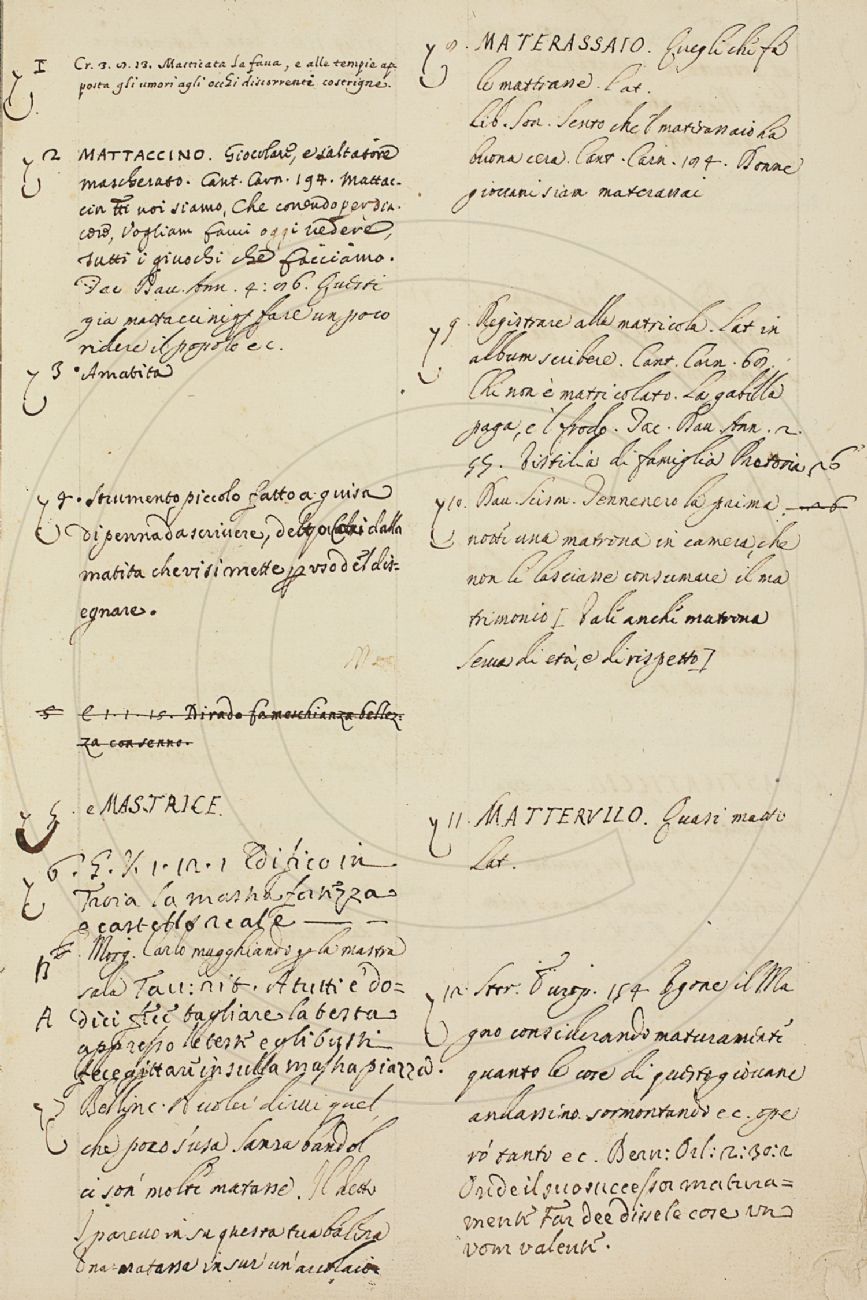 1 Cr. 3. 9. 13. Masticata la fava, e alle tempie ap
posta gli umori agli occhi discorrenti costrigne.
2 MATTACCINO. Giocolare, e saltatore
mascherato. Cant. Carn. 194. Mattac-
cin tti noi siamo, Che correndo per
Vogliam farvi oggi vedere,
Tutti i giuochi che facciamo.
Tac Dav. Ann. 4: 96. Questi
già mattaccini p fare un poco
ridere il popolo ec.
3 Amatita
4. Strumento piccolo fatto a guisa
di penna da scrivere, dalla
matita che vi si mette p uso del dis-
egnare.
5 C 1. 1. 15. Dirado fa meschianza bellez-
za con senno.
5. e MASTRICE.
6. G. V. 1. 12. 1 Edifico in
Troia la mastra fortezza
e castello reale
B Morg. Carlo mugghiando p la mastra
sala Tav: rit. A tutti e do=
A dici fece tagliare la testa
appresso le teste e gli busti
fece gittare in sulla mastra piazza.
7 Bellinc. vuolci di vin quel,
che poco s'usa Sanza bandol
ci son molte matasse. Il detto
I pareuo in su questa tua
Una matassa in sur un' arcolaio
8. MATERASSAIO. Quegli che fa
le matterasse. Lat.
Lib. Son. Sento che 'l materassaio ha
buona cera. Cant. Carn. 194. Donne
giovani siam materassai
9. Registrare alla matricola. Lat in
album scribere. Cant. Carn. 69.
Chi non è matricolato. La gabella
paga, e 'l frodo. Tac. Dav. Ann. 2.
55. Vistilia di famiglia Pretoria
10. Dav. Scism. Dennenero la prima
notte una matrona in camera, che
non li lasciasse consumare il ma
trimonio [ Vale anche matrona
di età, e di rispetto ]
11. MATTERULLO. Quasi matto
Lat.
12. Stor. Europ. 154 Ugone il Ma
gno considerando maturamente
quanto le cose di questo giovane
andassino sormontando ec. ope
rò tanto ec. Bern: Orl: 2: 30: 2
Onde il suo successor matura=
mente Far dee disse le cose un
vom valente.